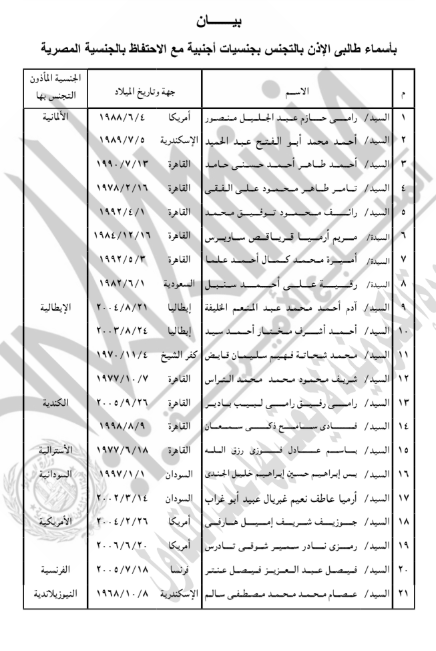 بيـــــان
بأسماء طالبى الإذن بالتجنس بجنسيات أجنبية مع الاحتفاظ بالجنسية المصرية
م الاســـم جهة وتاريخ الميلاد الجنسية المأذون التجنس بها
١ السيد/ رامى حازم عبد الجليل منصور أمريكا ١٩٨٨/٦/٤ الألمانية
٢ السيد/ أحمد محمد أبو الفتح عبد الحميد الإسكندرية ١٩٨٩/٧/٥
٣ السيد/ أحمد طاهر أحمد حسنى حامد القاهرة ١٩٩٠/٧/١٣
٤ السيد/ تامر طاهر محمود على الفقى القاهرة ١٩٧٨/٢/١٦
٥ السيد/ رائف محمود توفيق محمد القاهرة ١٩٩٢/٤/١
٦ السيدة/ مريم أرميا قرياقص ساويرس القاهرة ١٩٨٤/١٢/١٦
٧ السيدة/ أميرة محمد كمال أحمد علما القاهرة ١٩٩٢/٥/٣
٨ السيدة/ رقية على أحمد سنبل السعودية ١٩٨٢/٦/١
٩ السيد/ آدم أحمد محمد عبد المنعم الخليفة إيطاليا ٢٠٠٤/٨/٢١ الإيطالية
١٠ السيد/ أحمد أشرف مختار أحمد سيد إيطاليا ٢٠٠٣/٨/٢٤
١١ السيد/ محمد شحاتة فهيم سليمان فايض كفر الشيخ ١٩٧٠/١١/٤
١٢ السيد/ شريف محمود محمد محمد التراس القاهرة ١٩٧٧/١٠/٧
١٣ السيد/ رامى رفيق رامى لبيب بادير القاهرة ٢٠٠٥/٩/٢٦ الكندية
١٤ السيد/ فادى سامح ذكى سمعان القاهرة ١٩٩٨/٨/٩
١٥ السيد/ باسم عادل فوزى رزق الله القاهرة ١٩٧٧/٦/١٨ الأسترالية
١٦ السيد/ يس إبراهيم حسين إبراهيم خليل الجندى السودان ١٩٩٧/١/١ السودانية
١٧ السيد/ أرميا عاطف نعيم غبريال عبيد أبو غراب السودان ٢٠٠٢/٣/١٤
١٨ السيد/ جوزيف شريف إميل هارفى أمريكا ٢٠٠٤/٢/٢٦ الأمريكية
١٩ السيد/ رمزى نادر سمير شوقى تادرس أمريكا ٢٠٠٦/٦/٢٠
٢٠ السيد/ فيصل عبد العزيز فيصل عنتر فرنسا ٢٠٠٥/٧/١٨ الفرنسية
٢١ السيد/ عصام محمد محمد مصطفى سالم الإسكندرية ١٩٦٨/١٠/٨ النيوزيلاندية